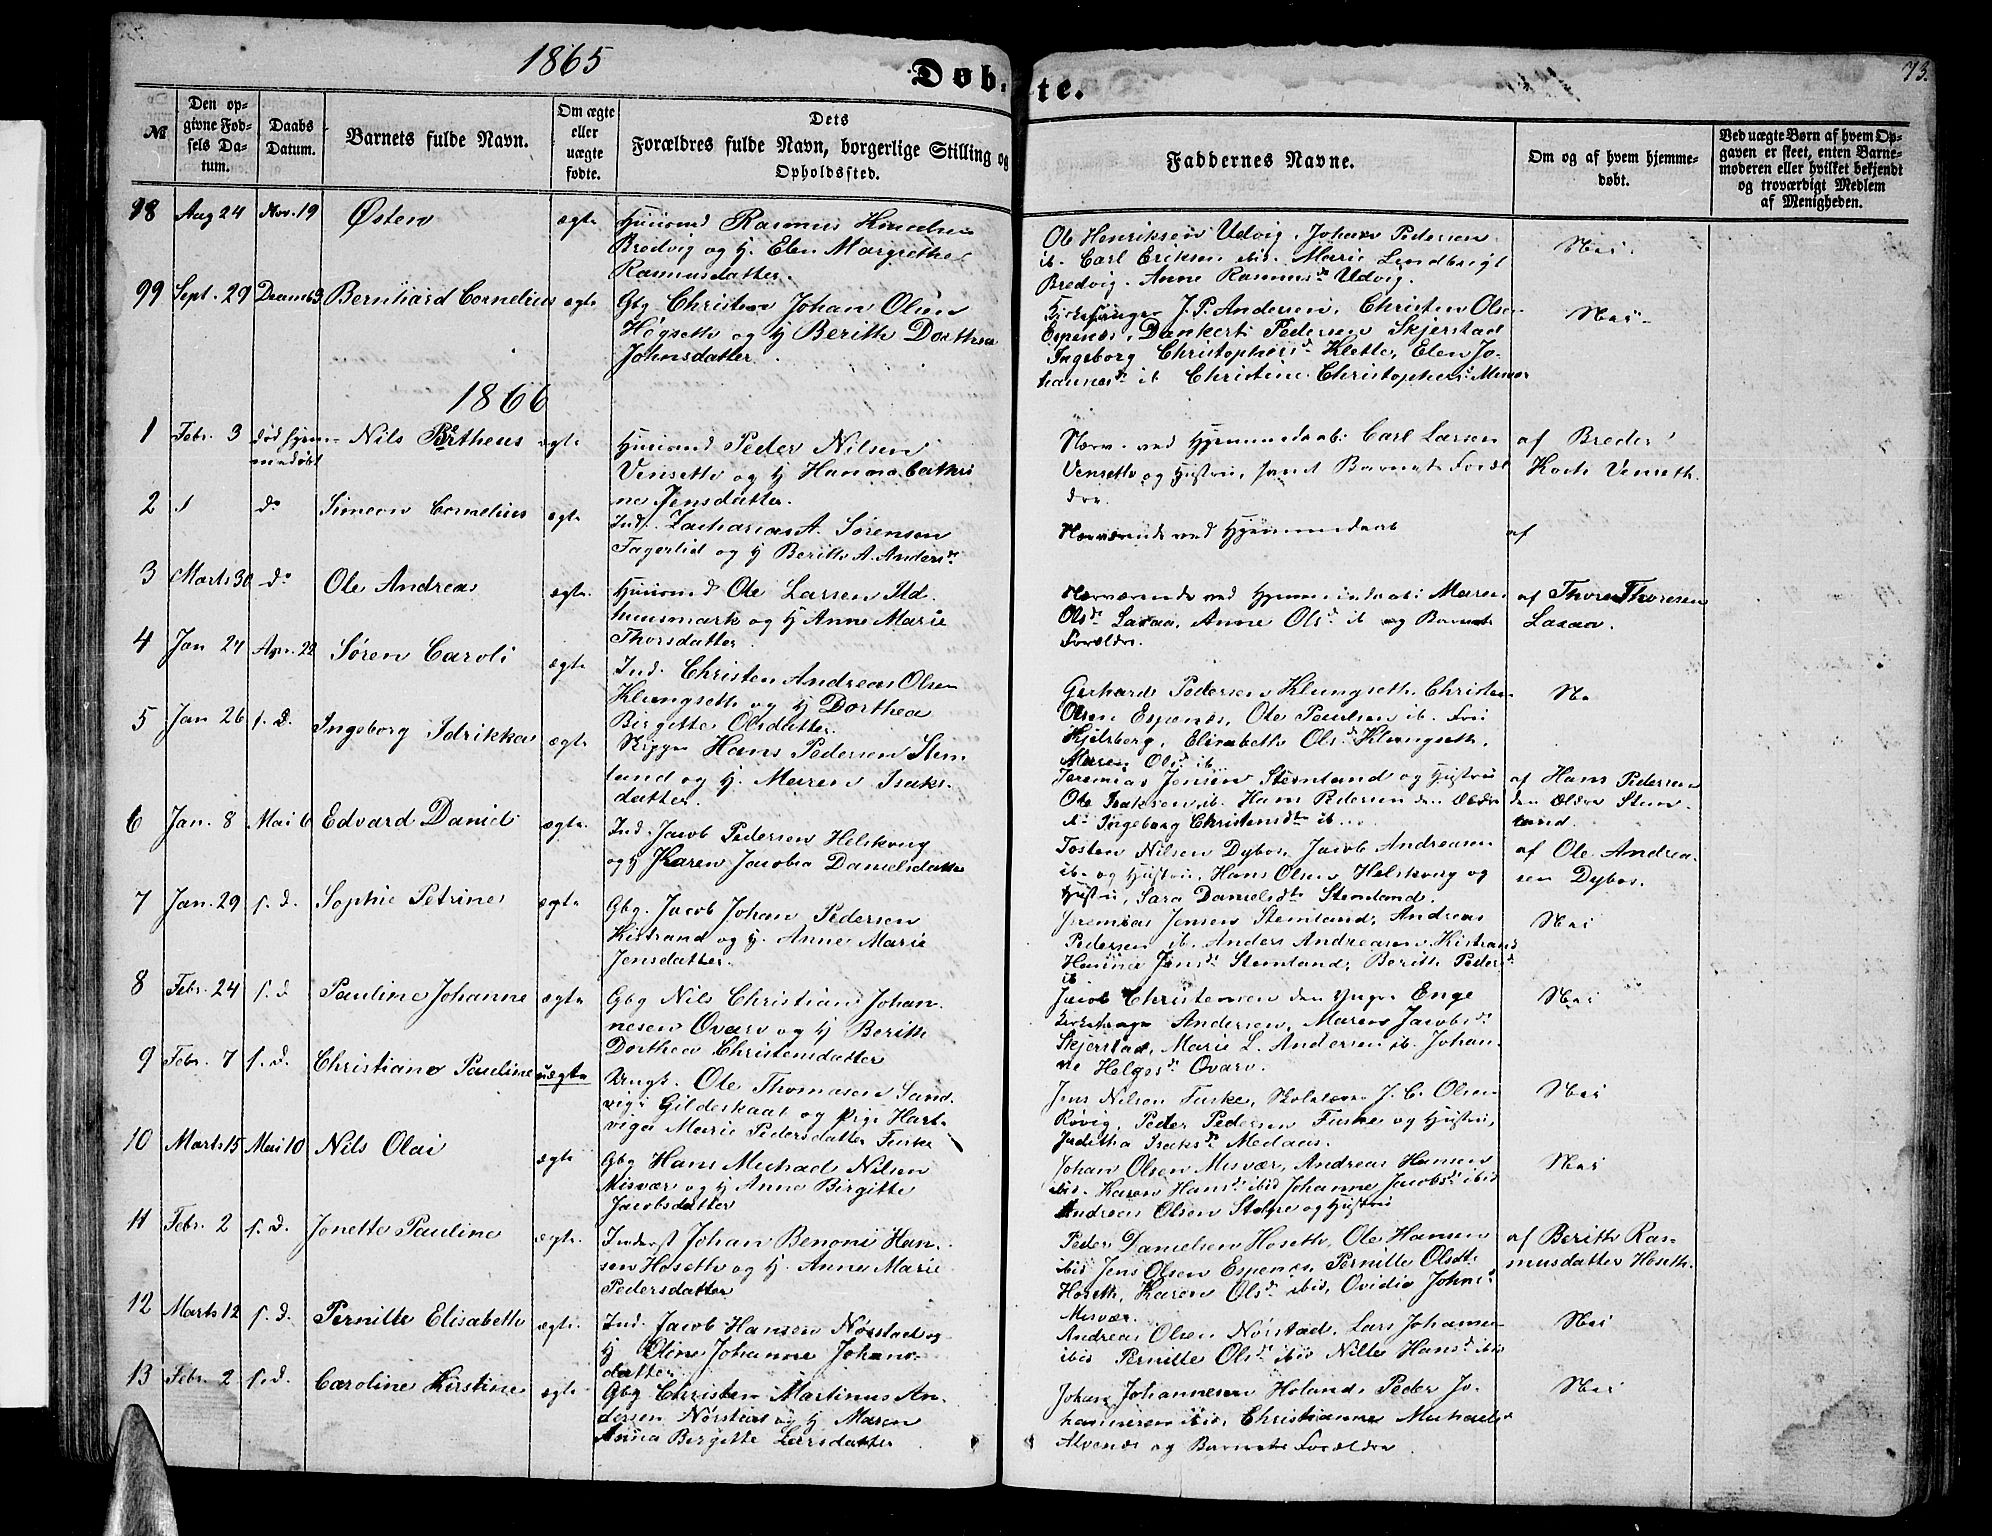 1865
Døbte.
73.
№
Den opgivne Fødsels Datum.
Daabs Datum.
Barnets fulde Navn.
Om ægte eller uægte fødte.
Dets Forældres fulde Navn, borgerlige Stilling og Opholdssted.
Faddernes Navne.
Om og af hvem hjemmedøbt.
Ved uægte Børn af hvem Opgaven er skeet, enten Barnemoderen eller hvilket bekjendt og troværdigt Medlem af Menigheden.
98 Aug 24 Nov. 19 Østen ægte
Huusmd Rasmus
Bredvig og H. Elen Margrethe
Rasmusdatter.
Ole Henriksen Udvig, Johan Pedersen
ib. Carl Eriksen ibid. Marie
Bredvig. Anne Rasmusd. Udvig.
Nei.
99 Sept. 29 Decemb 3 Bernhard Cornelius ægte
Gbg Christen Johan Olsen
Hogseth og H Berith Dorthea
Johnsdatter.
Kirkesanger J. P. Andersen, Christen Olsen
Espenes, Dankert Pedersen Skjerstad
Ingeborg Christophersd. Klette, Elen Jo-
hannesd. ib Christine Christophersd. Misvær
Nei.
1866
1 Febr. 3 død hjem-
medøbt Nils Bertheus ægte
Huusmd Peder Nilsen
Vensette og H Hanna Cathri
ne Jensdatter.
Nærv. ved Hjemmedaab: Carl Larsen
Vensette og Hustru, samt Barnets Foræl
dre.
af Breder
Koch Venseth.
2 do Simeon Cornelius ægte
Ind. Zacharias A. Sørensen
Fagerlid og H Berith A. Andersd.
Nærværende ved Hjemmedaab
af
3 Marts 30 do Ole Andreas ægte.
Huusmd Ole Larsen Ild
huusmark og H Anne Marie
Thorsdatter.
Nærværende ved Hjemmedaab: Maren
Olsd. Laxaa, Anne Olsd. ib og Barnets
Forældre.
af Thore Thoresen
Laxaa.
4 Jan 24 Apr. 22 Søren Caroli ægte
Ind. Christen Andreas Olsen
Klungseth og H Dorthea
Birgitte Olsdatter.
Gerhard Pedersen Klungseth, Christen
Olsen Espenes, Ole Paulsen ib.
Kjelsberg, Elisabeth Olsd. Klungseth,
Maren Olsd. ib
5 Jan 26 s. D. Ingeborg Idrikke ægte
Hans Pedersen Stem
land og H. Maren Isaks-
datter.
Jeremias Jensen Stemland og Hustru
Ole Isaksen ib. Hans Pedersen den Ældre
Ingeborg Christensd. ib.
af Hans Pedersen
den Ældre Stem-
land.
6 Jan. 8 Mai 6 Edvard Daniel ægte
Ind. Jacob Pedersen Helskoug
og H Karen Jacobia Danielsdatter
Tosten Nilsen Dybos, Jacob Andreasen
ib. og Hustru, Hans Olsen Helskoug og
Hustru, Sara Danielsd. Stemland.
af Ole Andrea-
sen Dybos.
7 Jan. 29 s. D. Sophie Petrine ægte
Gbg. Jacob Johan Pedersen
Kistrand og H. Anne Marie
Jensdatter.
Jeremias Jensen Stemland, Andreas
Pedersen ib. Anders Andreasen Kistrand
Hanna Jensd. Stemland, Berith Pedersd.
ib
Nei
8 Febr. 24 s. d Pauline Johanne ægte
Gbg Nils Christian Johan-
nesen Qvarv og H Berith
Dorthea Christensdatter
Jacob Christensen den Yngre Enge
Andersen, Maren Jacobsd.
Skjerstad, Marie L. Andersen ib. Johan-
ne Helgesd. Qvarv.
Nei
9 Febr. 7 s. D. Christiane Pauline uægte
Ungk. Ole Thomasen Sand-
vig i Gildeskaal og Pige Hart-
viga Marie Pedersdatter Fuske
Jens Nilsen Fuske, J. C. Olsen
Røvig, Peder Pedersen Fuske og Hustru,
Judetha Isaksd. Medaas.
Nei
10 Marts 15 Mai 10 Nils Olai ægte
Gbg Hans Michael Nilsen
Misvær og H Anne Birgitte
Jacobsdatter
Johan Olsen Misvær, Andreas Hansen
ibid. Karen Hansd. ibid Johanne Jacobsd. ibid
Andreas Olsen Stolpe og Hustru
Nei
11 Febr. 2 s. D. Jonette Pauline ægte.
Inderst Johan Benoni Han-
sen Hoseth og H. Anne Marie
Pedersdatter
Peder Danielsen Hoseth, Ole Hansen
ibid Jens Olsen Espenes, Pernille Olsdt.
Hoseth, Karen Olsd. ibid, Ovidia Johnsd.
Misvær.
af Berith Ras-
musdatter Hoseth.
12 Marts 12 s. D. Pernille Elisabeth ægte.
Ind. Jacob Hansen Nørstad og
H Oline Johanne Johans-
datter.
Andreas Olsen Nørstad, Lars Johannes
ibid Pernille Olsd. ibid Nille Hansd. ibid
Nei
13 Febr. 2 s. d. Caroline Kirstine ægte
Gbg Christen Martinus An-
dersen Nørstad og H Maren
Anna Birgitte Larsdatter
Johan Johannesen Holand, Peder Jo-
hannesen ibid, Christianne Michaelsd
Alvenes og Barnets Forældre.
Nei